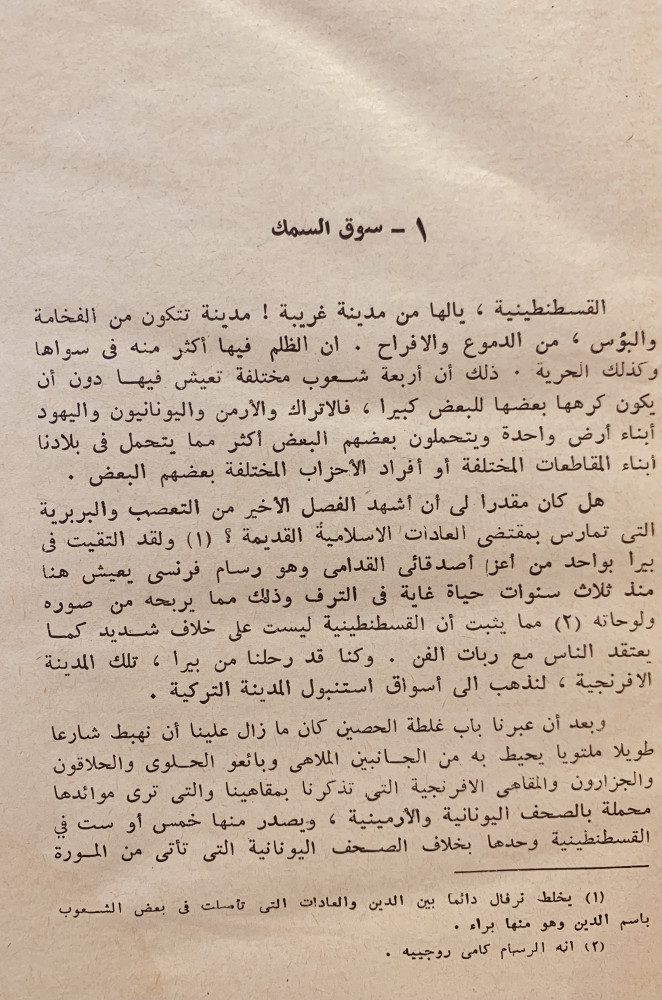 ١ - سوق السمك
القسطنطينية ، يالها من مدينة غريبة ! مدينة تتكون من الفخامة
والبؤس ، من الدموع والافراح . ان الظلم فيها أكثر منه فى سواها
وكذلك الحرية . ذلك أن أربعة شعوب مختلفة تعيش فيها دون أن
يكون كرهها بعضها للبعض كبيرا ، فالاتراك والأرمن واليونانيون واليهود
أبناء أرض واحدة ويتحملون بعضهم البعض أكثر مما يتحمل فى بلادنا
أبناء المقاطعات المختلفة أو أفراد الأحزاب المختلفة بعضهم البعض .
هل كان مقدرا لى أن أشهد الفصل الأخير من التعصب والبربرية
التى تمارس بمقتضى العادات الاسلامية القديمة ؟ (١) ولقد التقيت فى
بيرا بواحد من أعز أصدقائى القدامى وهو رسام فرنسى يعيش هنا
منذ ثلاث سنوات حياة غاية فى الترف وذلك مما يربحه من صوره
ولوحاته (٢) مما يثبت أن القسطنطينية ليست على خلاف شديد كما
يعتقد الناس مع ربات الفن . وكنا قد رحلنا من بيرا ، تلك المدينة
الافرنجية ، لنذهب الى أسواق استنبول المدينة التركية .
وبعد أن عبرنا باب غلطة الحصين كان ما زال علينا أن نهبط شارعا
طويلا ملتويا يحيط به من الجانبين الملاهى وبائعو الحلوى والحلاقون
والجزارون والمقاهى الافرنجية التى تذكرنا بمقاهينا والتى ترى موائدها
محملة بالصحف اليونانية والأرمينية ، ويصدر منها خمس أو ست في
القسطنطينية وحدها بخلاف الصحف اليونانية التى تأتى من المورة
(١) يخلط نرفال دائما بين الدين والعادات التى تأصلت فى بعض الشعوب
باسم الدين وهو منها براء .
(٢) انه الرسام كامى روجييه .